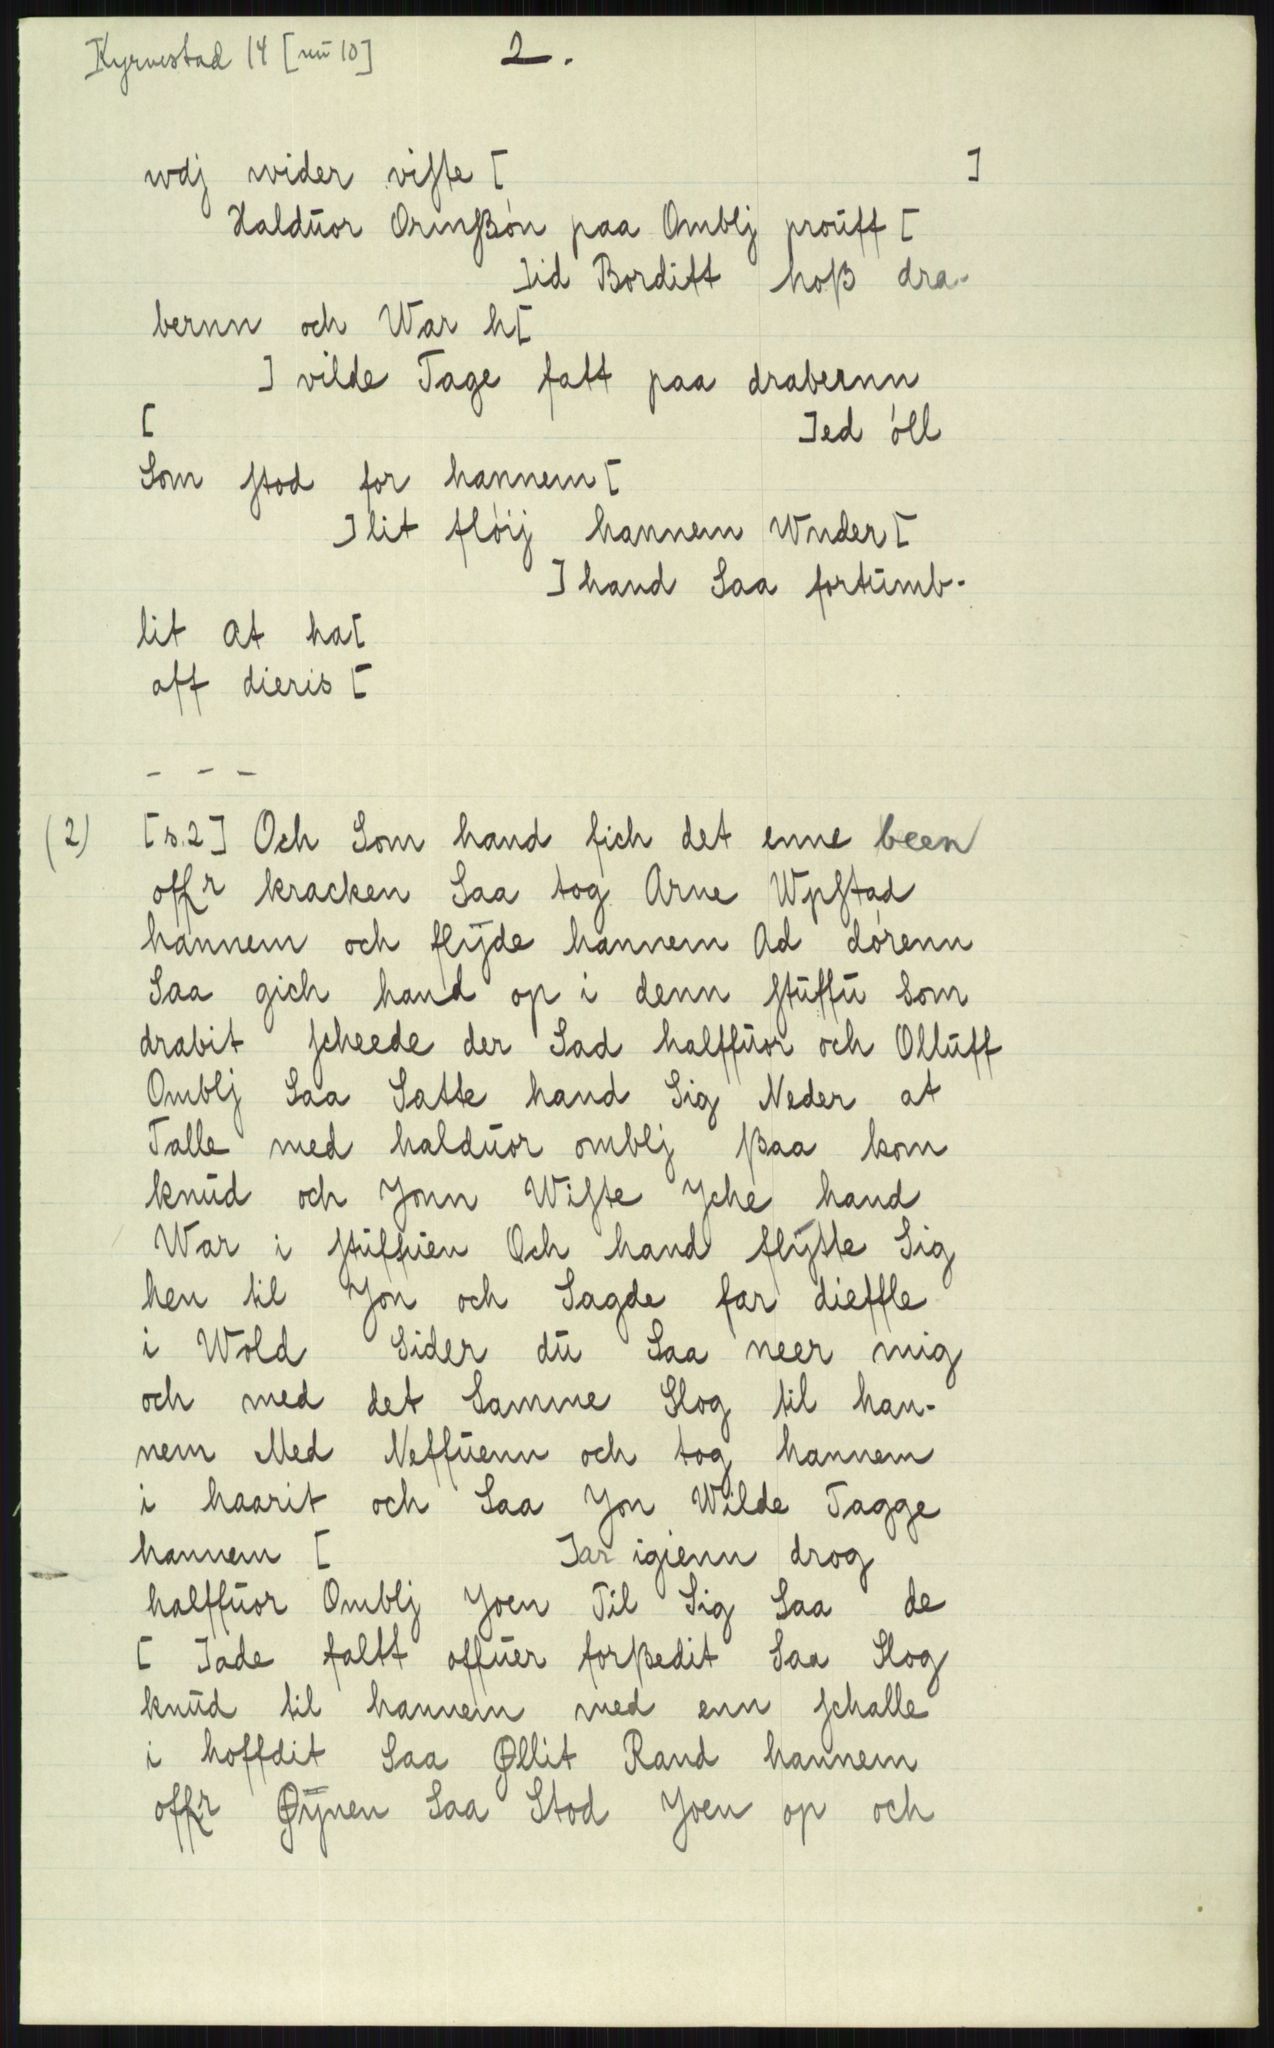 Kyrvestad 14 [nú 10]
2.
wdj wider viste [ ]
Haldúor Ormsßön paa Omblj proúff [
]id Borditt hoß dra-
bernn och War h[
] vilde Tage fatt paa drabernn
[ ]ed öll
Som stod for hannem [
]lit flöij hannem Wnder [
] hand Saa fortúmb-
lit at ha[
aff dieris [
- - -
(2) [s.2] Och Som hand fich det enne been
offr kracken Saa tog Arne Wpstad
hannem och flÿde hannem Ad dörenn
Saa gich hand op i denn stúffú Som
drabit scheede der Sad halffúor och Ollúff
Omblj Saa Satte hand Sig Neder at
Talle med haldúor omblj ßaa kom
knúd och Jonn Wiste Jche hand
War i stúffúen Och hand flÿtte Sig
hen til Jon och Sagde far dieffle
i Wold Sider dú Saa neer mig
och med det Samme Slog til han-
nem Med Neffúenn och tog hannem
i haarit och Saa Jon Wilde Tagge
hannem [ ]ar igienn drog
halffúor Omblj Joen Til Sig Saa de
[ ]ade faltt offúer forßedit Saa Slog
knúd til hannem med enn schalle
i hoffdit Saa Øllit Rand hannem
offr Øÿnen Saa Stod Joen op och